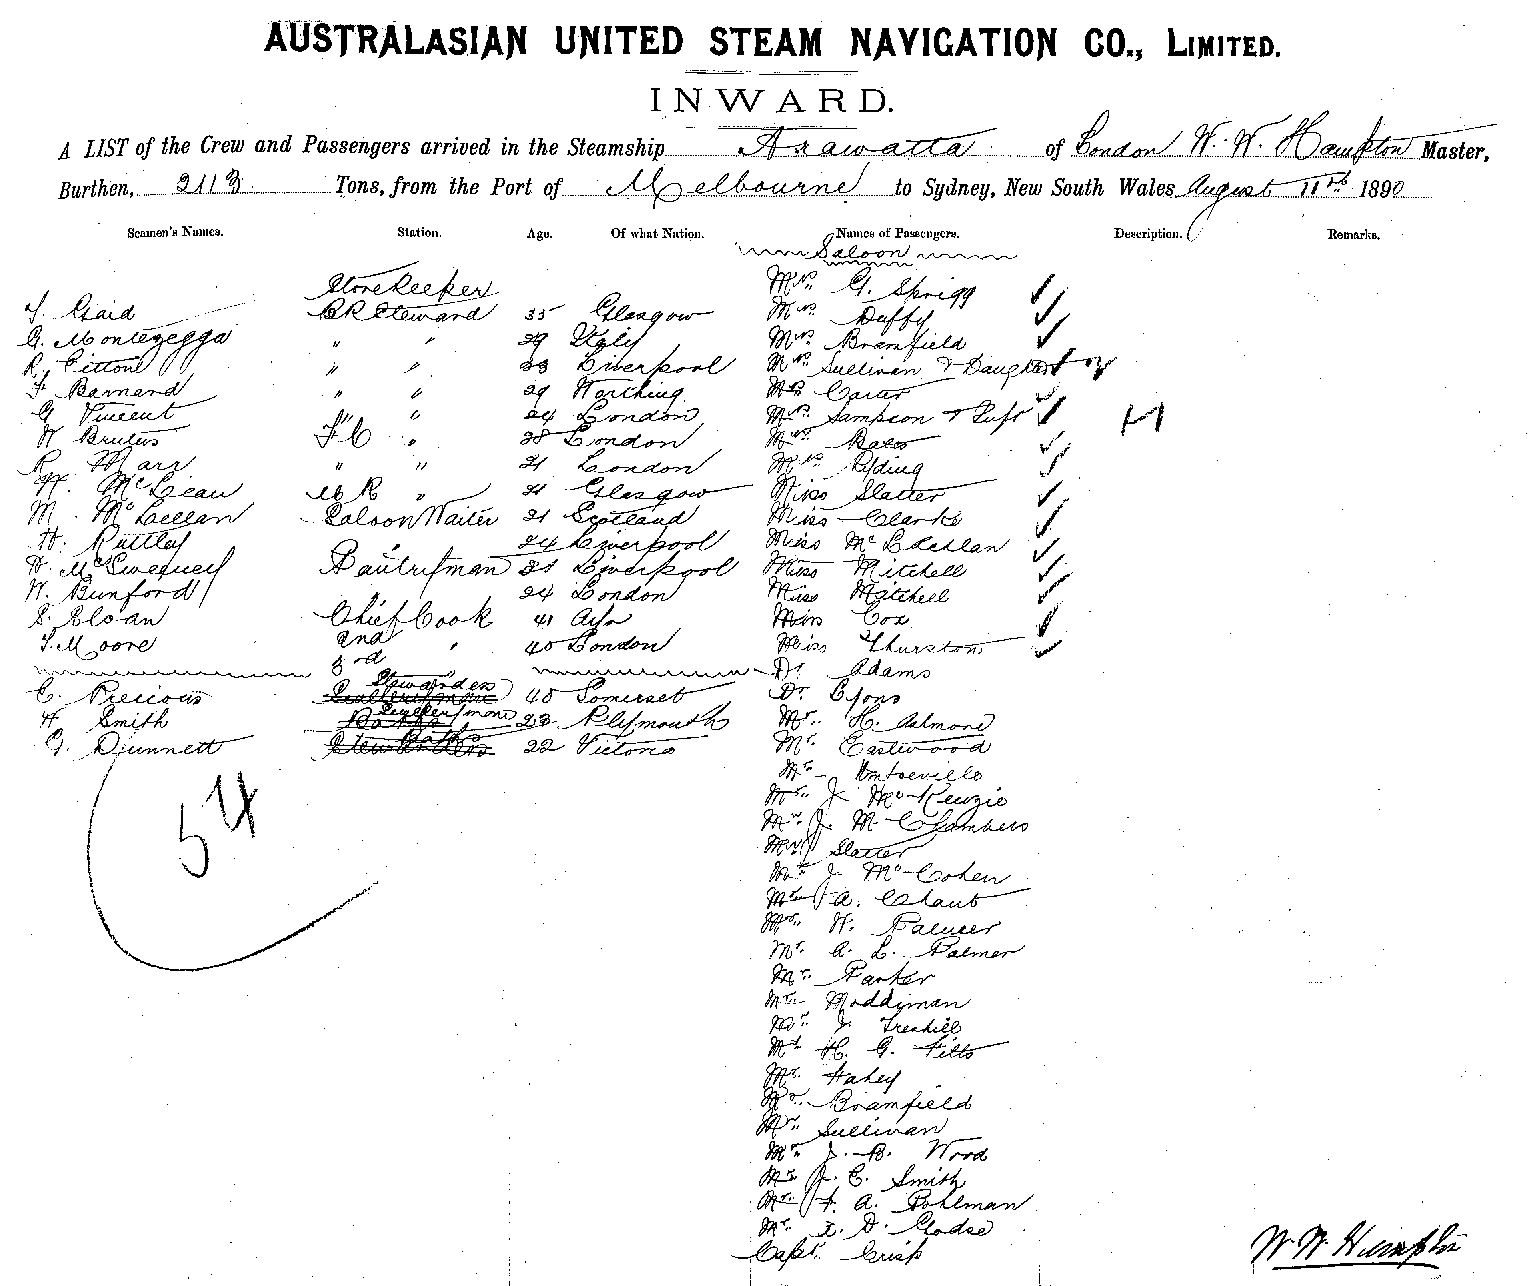 AUSTRALASIAN UNITED STEAM NAVIGATION CO., LIMITED.
INWARD.
A LIST of the Crew and Passengers arrived in the Steamship Arawatta of London W. W. Hampton Master,
Burthen, 2113 Tons, from the Port of Melbourne to Sydney, New South Wales August 11th 1890
Seamen's Names. Station. Age. Of what Nation. Names of Passengers. Description. Remarks.
Storekeeper
Gaid B R Steward 35 Glasgow
G. Montezegga " " 29 Italy
R. Cittone " " 33 Liverpool
F Barnard " " 29 Worthing
G Vincent " 24 London
W Brutus F C " 28 London
R Marr " " 21 London
McLean " 21 Glasgow
M. McLellan Saloon Waiter 21 Scotland
H. Ruttley " 24 Liverpool
McSweeney Pantryman 21 Liverpool
W. Bunford 24 London
S. Sloan Chief Cook 41 Ayr
T. Moore 2nd " 40 London
3rd
C. Precious Stewardess 40 Somerset
H Smith 23 Plymouth
G. Dunnett 22 Victoria
54
Saloon
Mrs. G. Sprigg
Mrs. Duffy
Mrs. Bramfield
Mrs. Sullivan & Daughter 2
Mrs Carter
Mrs. Sampson &
Mrs. Bates
Mrs. Ryding
Miss Slatter
Miss Clarke
Miss McLachlan
Miss Mitchell
Miss Mitchell
Miss Cox
Miss Thurston
Dr. Adams
Dr. Lyons
Mr. H. Ashmore
Mr. Eastwood
Mr.
Mr. J. McKenzie
Mr. J. M. Chambers
Mr. Slatter
Mr. J. Mc Cohen
Mr. A. Chaut
Mr. W. Palmer
Mr. A. L. Palmer
Mr. Parker
Mr. Moddiman
Mr. J. Treahill
Mr. H. G. Fitts
Mr. Hahey
Mr. Bramfield
Mr. Sullivan
Mr. J. B. Wood
Mr. J. C. Smith
Mr. F. A. Pohlman
Mr. D. Clodse
Capt. Crisp
W. W. Hampton